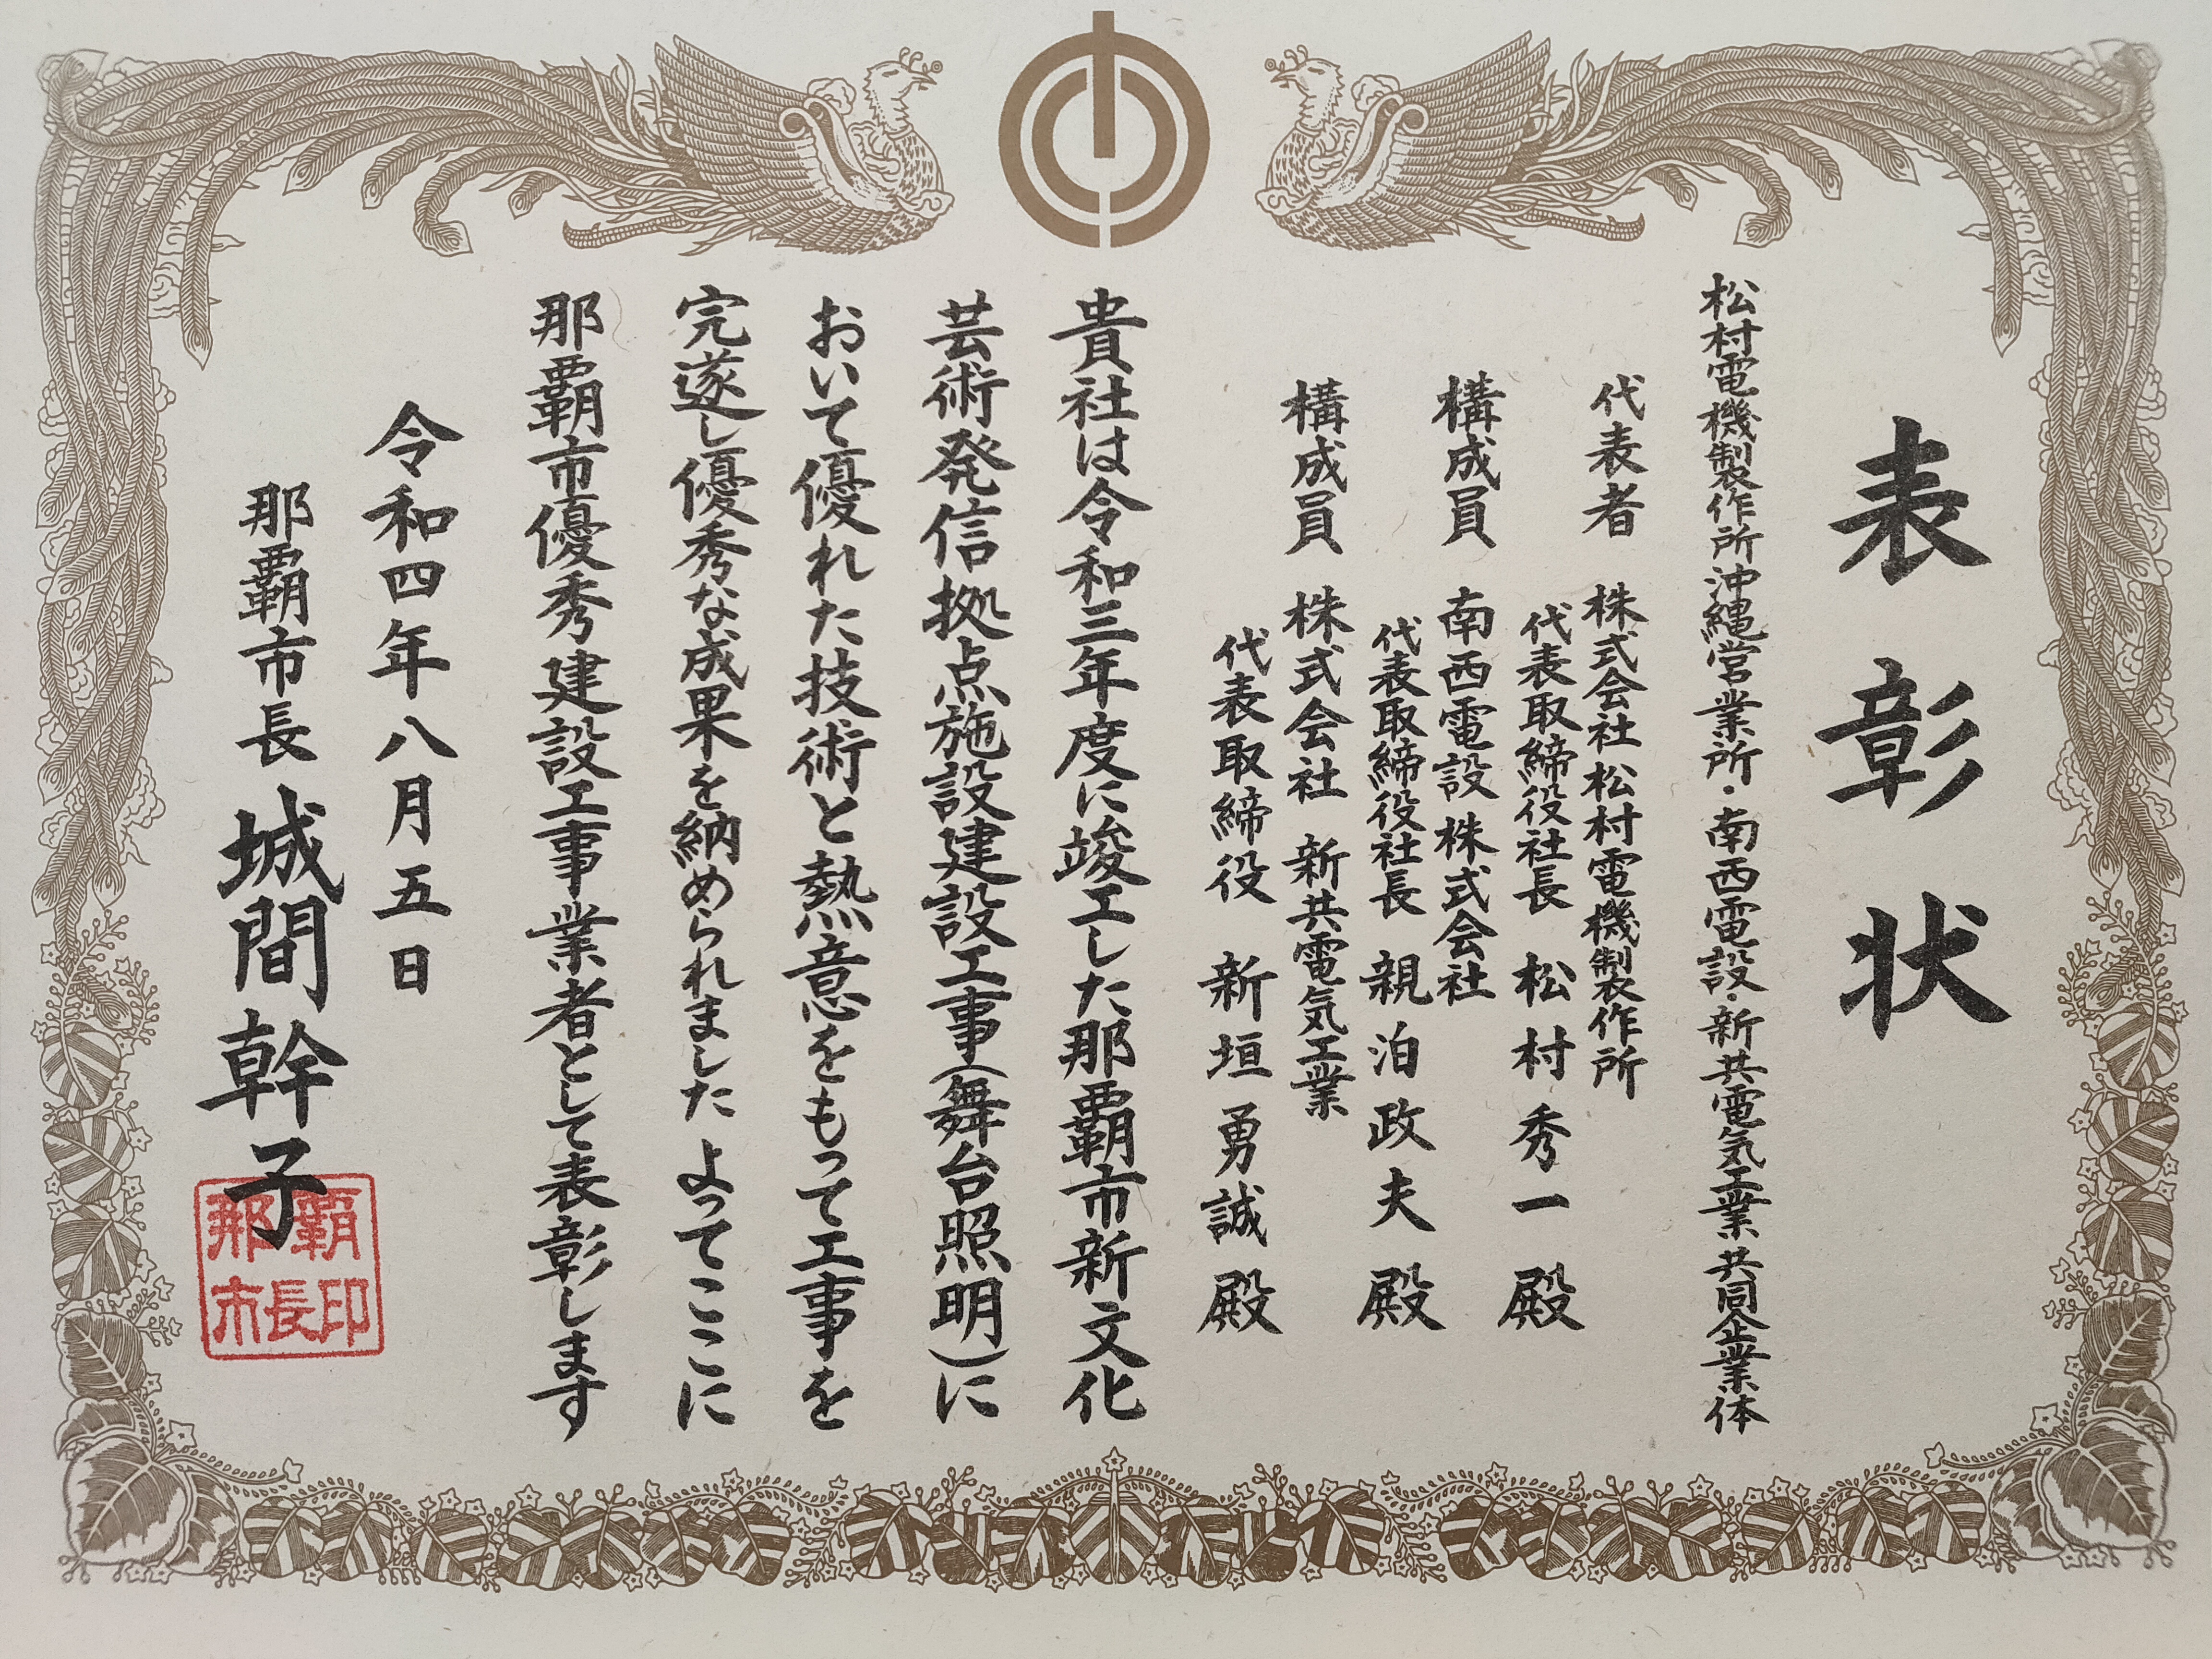 表彰状
松村電機製作所沖縄営業所・南西電設・新共電気工業共同企業体
代表者 株式会社松村電機製作所
代表取締役社長 松村秀一 殿
構成員 南西電設株式会社
代表取締役社長 親泊政夫 殿
構成員 株式会社 新共電気工業
代表取締役 新垣勇誠 殿
貴社は令和三年度に竣工した那覇市新文化
芸術発信拠点施設建設工事(舞台照明)に
おいて優れた技術と熱意をもって工事を
完遂し優秀な成果を納められました よってここに
那覇市優秀建設工事業者として表彰します
令和四年八月五日
那覇市長 城間幹子
那覇
市長印